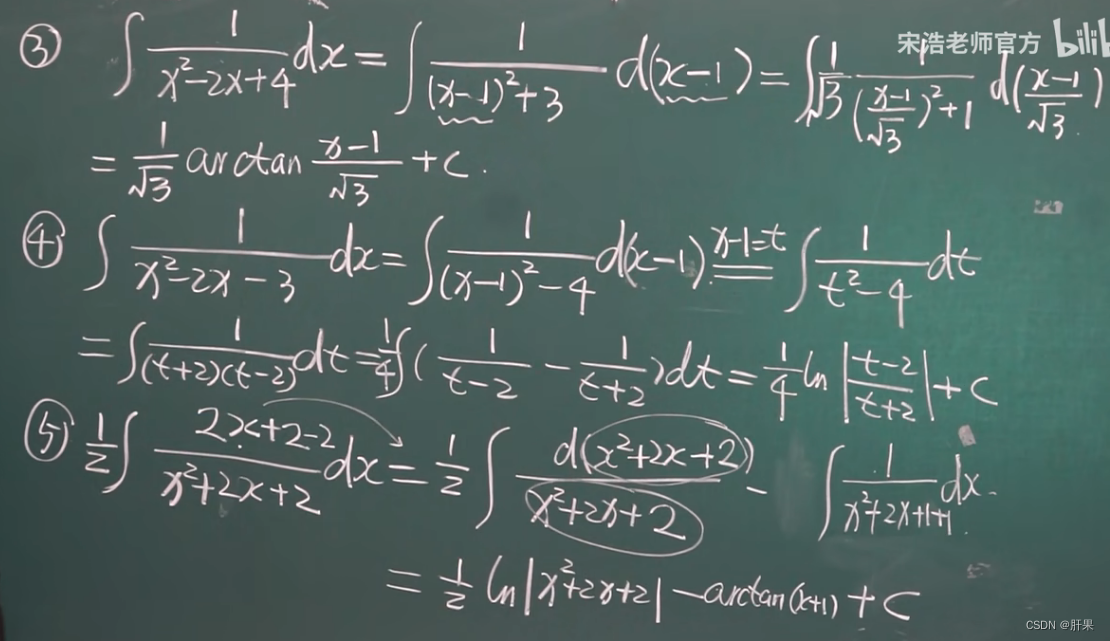 宋浩老师官方 bilib
③ ∫ 1/(x²-2x+4) dx = ∫ 1/((x-1)²+3) d(x-1) = ∫ 1/√3 1/(((x-1)/√3)²+1) d((x-1)/√3)
= 1/√3 arctan (x-1)/√3 + C.
④ ∫ 1/(x²-2x-3) dx = ∫ 1/((x-1)²-4) d(x-1) x-1=t ∫ 1/(t²-4) dt
= ∫ 1/((t+2)(t-2)) dt = 1/4 ∫ ( 1/(t-2) - 1/(t+2) ) dt = 1/4 ln |(t-2)/(t+2)| + C
⑤ 1/2 ∫ (2x+2-2)/(x²+2x+2) dx = 1/2 ∫ d(x²+2x+2)/(x²+2x+2) - ∫ 1/(x²+2x+1+1) dx.
= 1/2 ln|x²+2x+2| - arctan(x+1) + C
CSDN @肝果